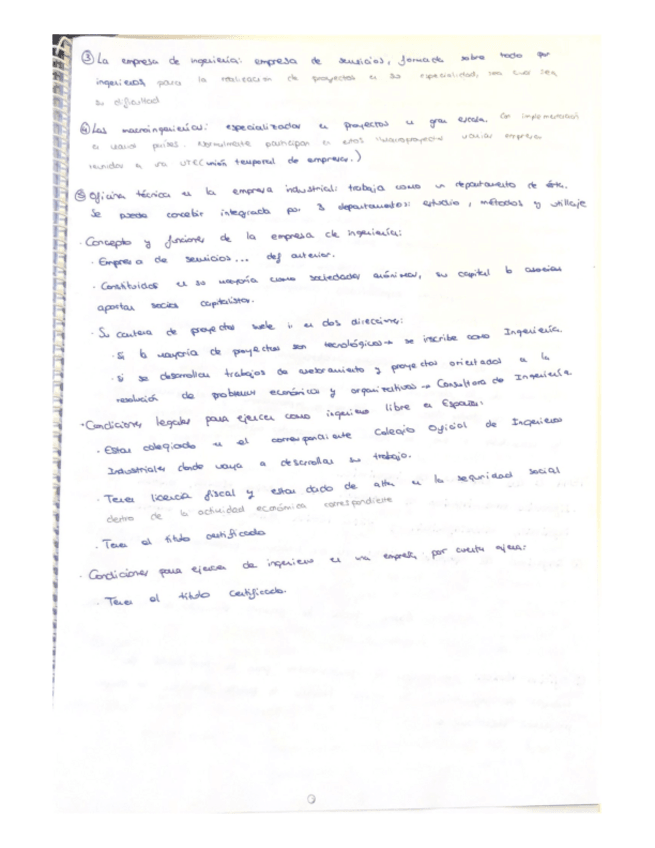 ③ La empresa de ingeniería: empresa de servicios, formada sobre todo por
ingenieros, para la realización de proyectos en su especialidad, sea cual sea
su dificultad
④ Las macroingenierías: especializadas en proyectos en gran escala. Con implementación
en varios países. Normalmente participan en estos macroproyectos varias empresas
reunidas en una UTE (unión temporal de empresas.)
⑤ Oficina técnica en la empresa industrial: trabaja como un departamento de ésta.
Se puede concebir integrada por 3 departamentos: estudio, métodos y utillaje
· Concepto y funciones de la empresa de ingeniería:
· Empresa de servicios... def anterior.
· Constituidas en su mayoría como sociedades anónimas, su capital lo
aportan socios capitalistas.
· Su cartera de proyectos suele ir en dos direcciones:
· Si la mayoría de proyectos son tecnológicos → se inscribe como Ingeniería.
· Si se desarrollan trabajos de asesoramiento y proyectos orientados a la
resolución de problemas económicos y organizativos → Consultora de Ingeniería.
· Condiciones legales para ejercer como ingeniero libre en España:
· Estar colegiado en el correspondiente Colegio Oficial de Ingenieros
Industriales donde vaya a desarrollar su trabajo.
· Tener licencia fiscal y estar dado de alta en la seguridad social
dentro de la actividad económica correspondiente
· Tener el título certificado
· Condiciones para ejercer de ingeniero en una empresa por cuenta ajena:
· Tener el título certificado.